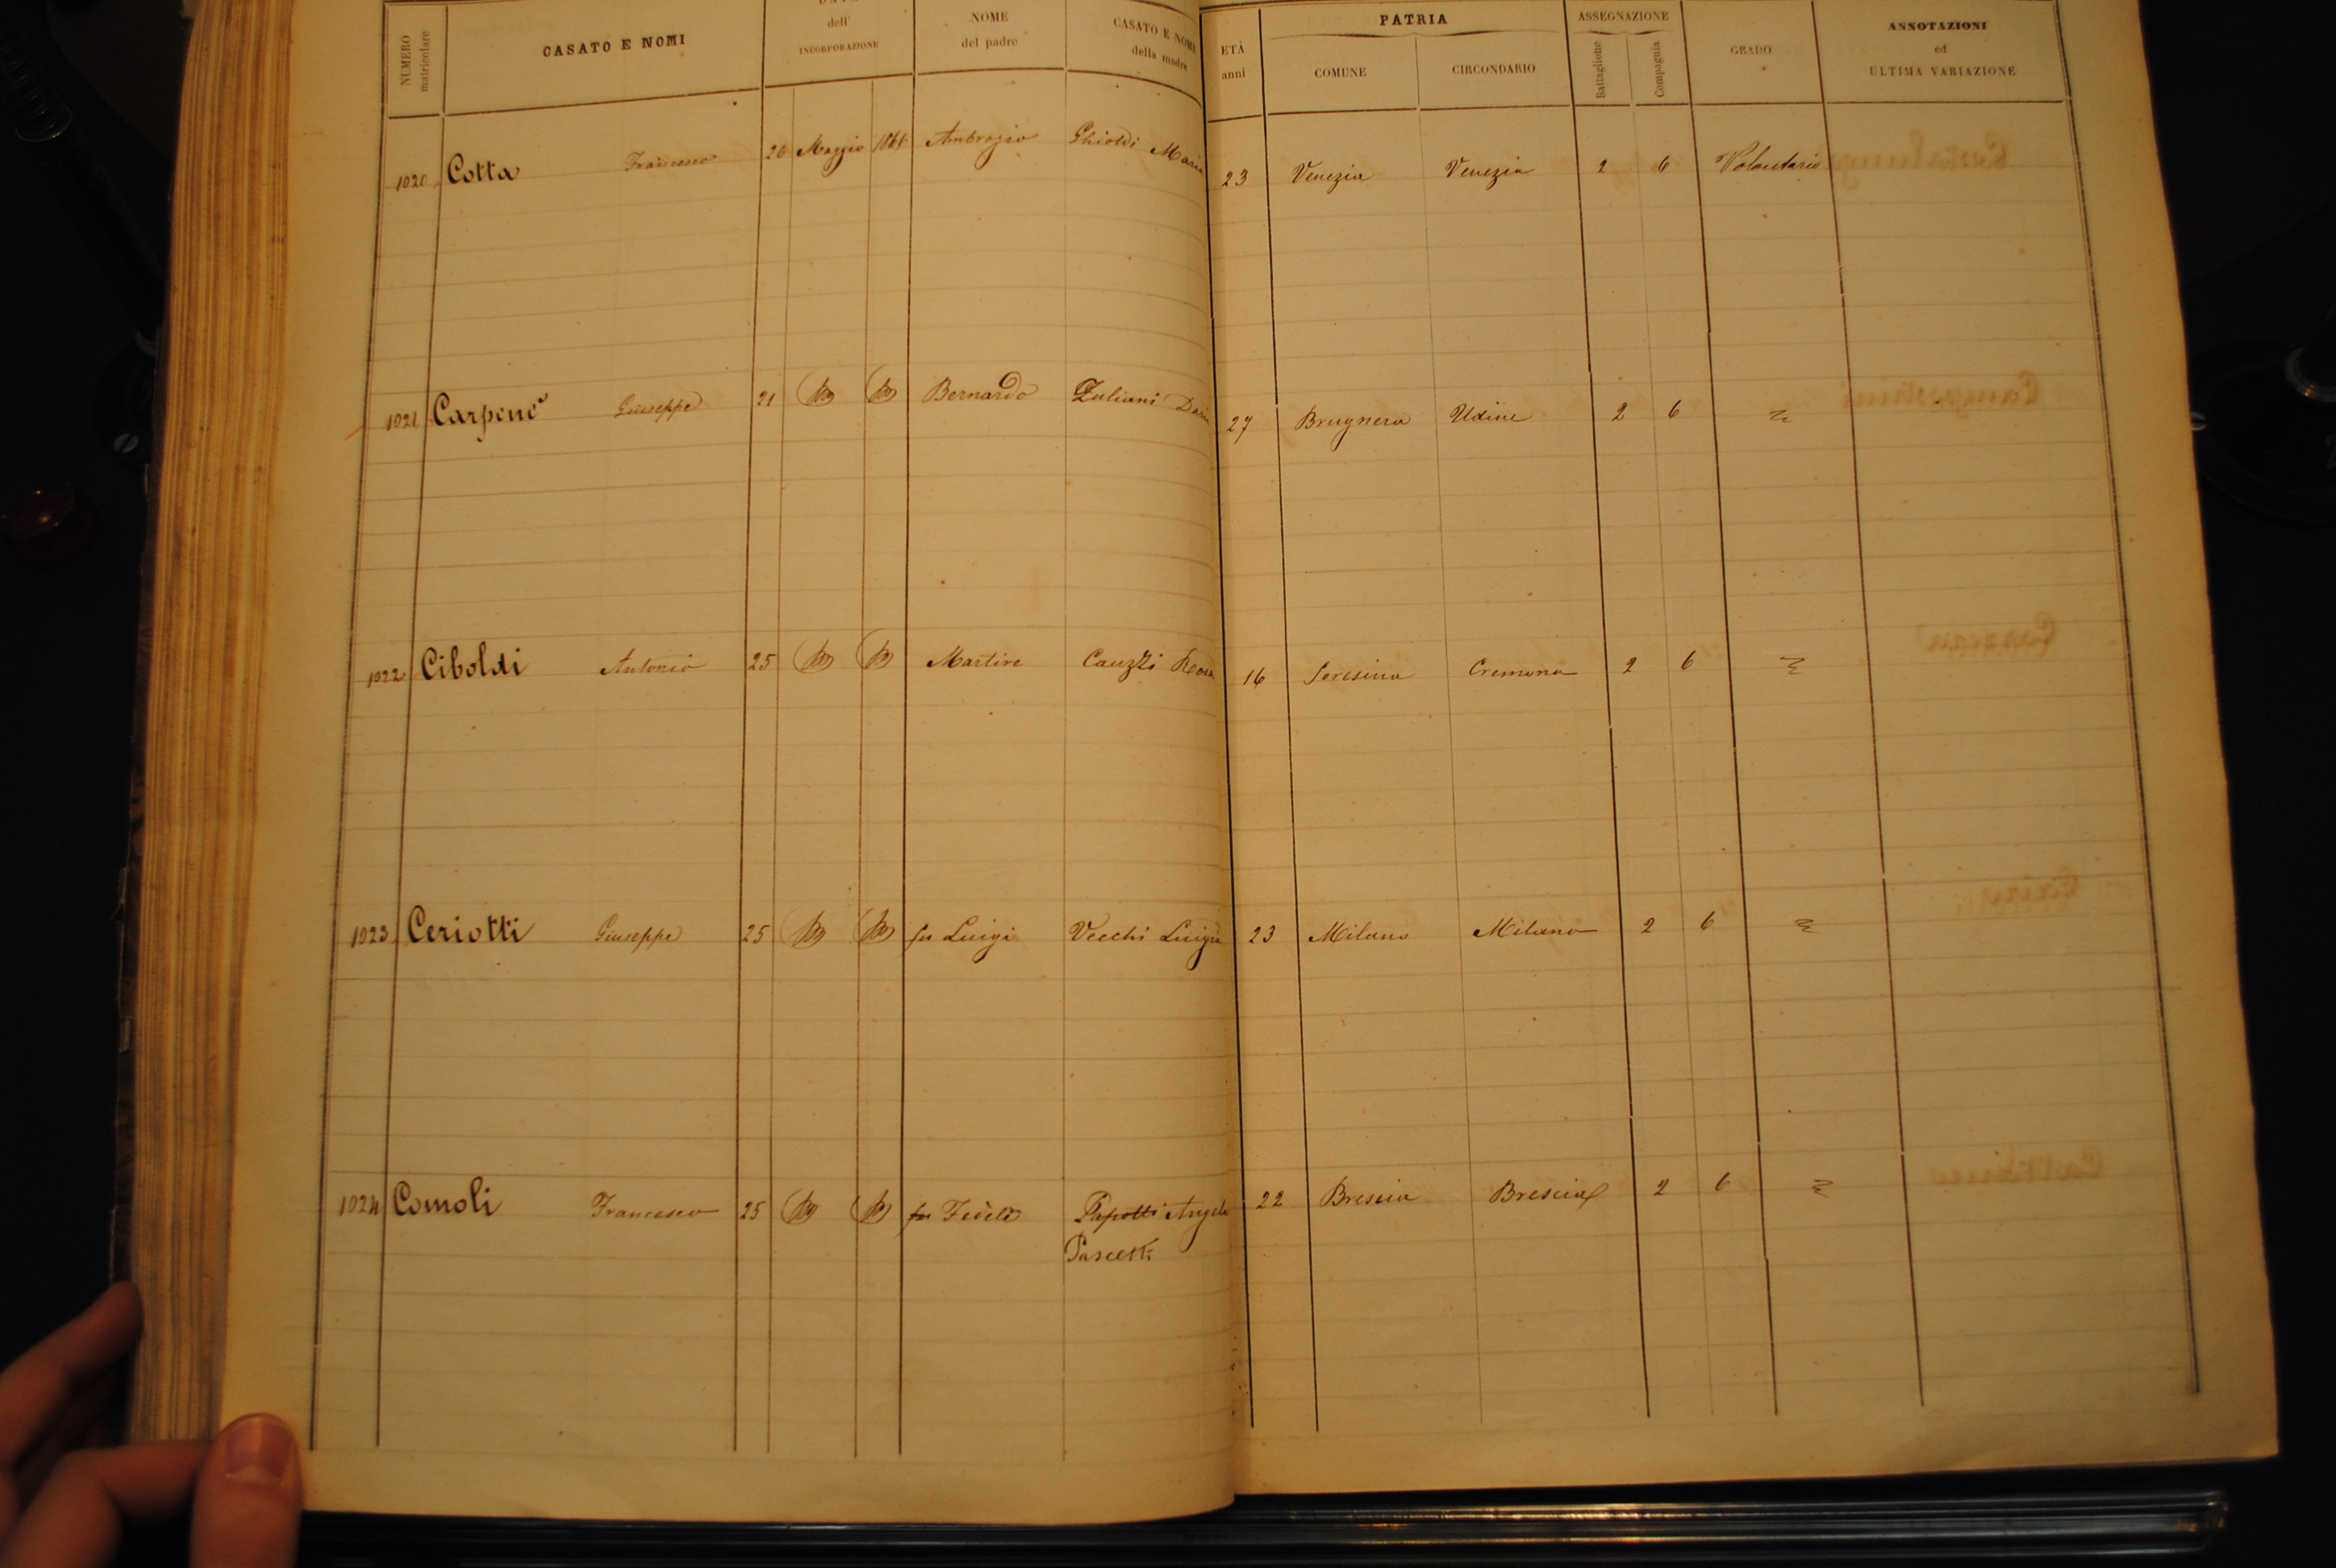 NUMERO matricolare
CASATO E NOMI
DATA dell' INCORPORAZIONE
NOME del padre
CASATO E NOME della madre
ETÀ anni
PATRIA
COMUNE
CIRCONDARIO
ASSEGNAZIONE
Battaglione
Compagnia
GRADO
ANNOTAZIONI ed ULTIMA VARIAZIONE
1020 Cotta Francesco 20 Maggio Ambrogio Ghioldi Maria 23 Venezia Venezia 2 6 Volontario
1021 Carpenè Giuseppe 21 Bernardo Zuliani 27 Brugnera Udine 2 6
1022 Ciboldi Antonio 25 Martire Cauzzi Rosa 16 Soresina Cremona 2 6
1023 Ceriotti Giuseppe 25 fu Luigi Vecchi Luigia 23 Milano Milano 2 6
1024 Comoli Francesco 25 fu Fedele Papotti Angela 22 Brescia Brescia 2 6
Pascetti